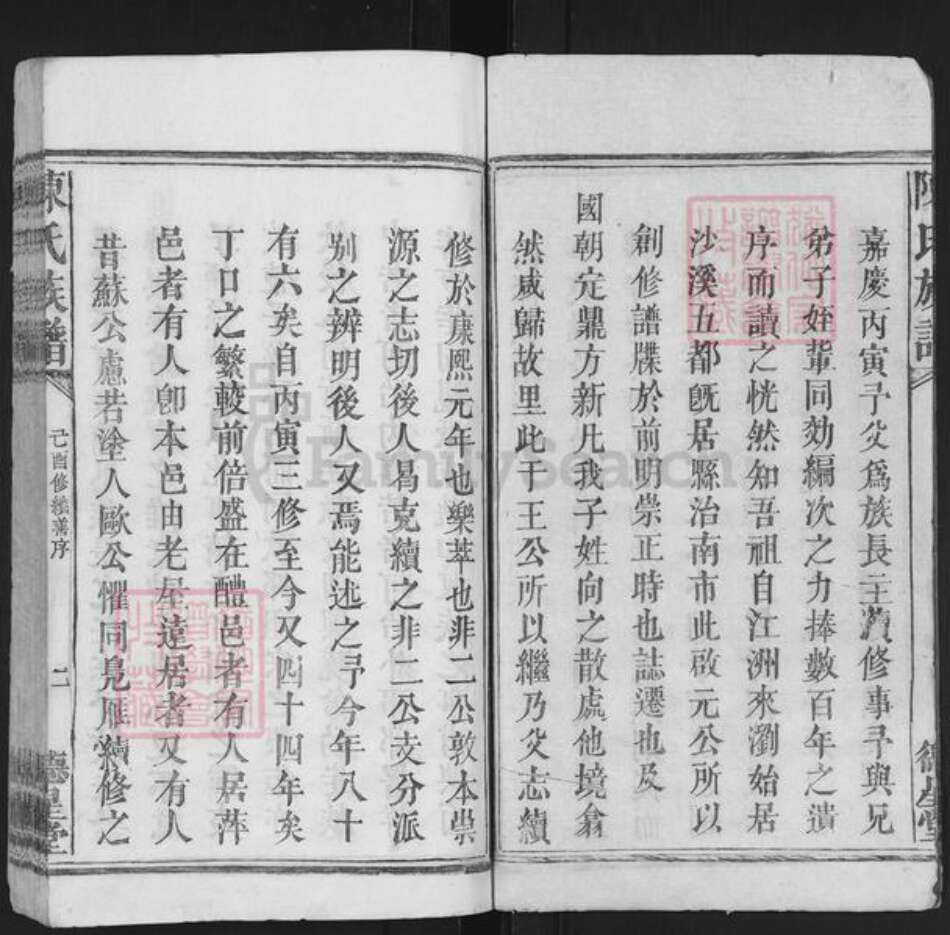 嘉慶丙寅予父爲族長主濆修事予與兄
弟子姪輩同効編次之力捧數百年之遺
序而讀之恍然知吾祖自江洲來瀏始居
沙溪五都旣居縣治南市此啟元公所以
創修譜牒於前明崇正時也誌遷也及
國朝定鼎方新凡我子姓向之散處他境翕
然咸歸故里此于王公所以繼乃父志續
修於康熙元年也樂萃也非二公敦本崇
源之志切後人曷克續之非二公支分派
别之辨明後人又焉能述之予今年八十
有六矣自丙寅三修至今又四十四年矣
丁口之繁較前倍盛在醴邑者有人居萍
邑者有人卽本邑由老屋遠居者又有人
昔蘇公慮若塗人歐公懼同鳧雁續修之
陳氏族譜
己酉修繼善序
二
德星堂
FamilySearch